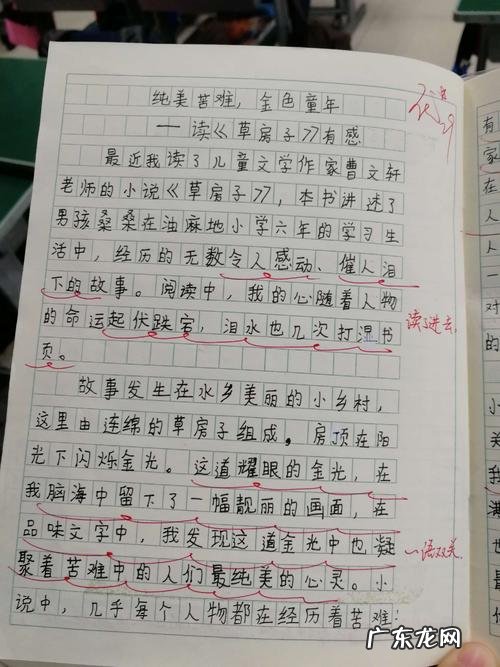 纯美苦难，金色童年
——读《草房子》有感
最近我读了儿童文学作家曹文轩
老师的小说《草房子》，本书讲述了
男孩桑桑在油麻地小学六年的学习生
活中，经历的无数令人感动、催人泪
下的故事。阅读中，我的心随着人物
的命运起伏跌宕，泪水也几次打湿书
页。
读了进去。
故事发生在水乡美丽的小乡村，
这里由连绵的草房子组成。房顶在阳
光下闪烁金光。这道耀眼的金光，在
我脑海中留下了一幅靓丽的画面，在
品味文字中，我发现这道金光中也凝
一语双关
聚着苦难中的人们最纯美的心灵。小
说中，几乎每个人物都在经历着苦难：
有
家
在
人
人
一
对
的
广东龙网